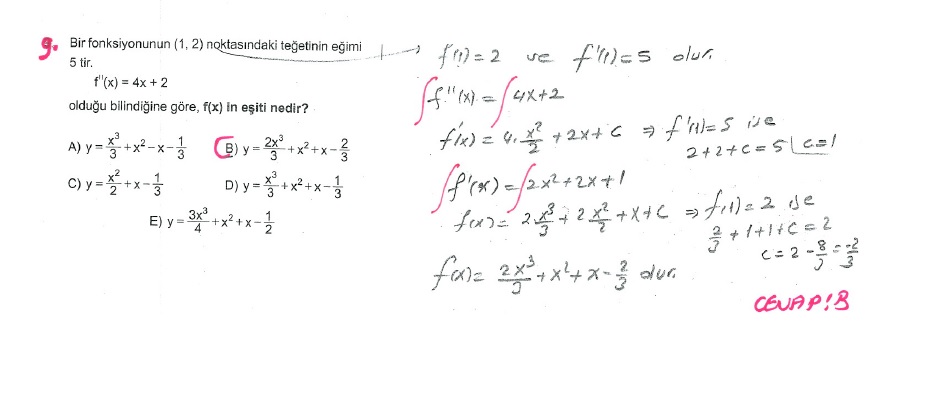 9. Bir fonksiyonunun (1, 2) noktasındaki teğetinin eğimi
5 tir.
f''(x) = 4x + 2
olduğu bilindiğine göre, f(x) in eşiti nedir?
A) y = x³/3 + x² - x - 1/3
B) y = 2x³/3 + x² + x - 2/3
C) y = x²/2 + x - 1/3
D) y = x³/3 + x² + x - 1/3
E) y = 3x³/4 + x² + x - 1/2
→ f(1) = 2 ve f'(1) = 5 olur.
∫f''(x) = ∫4x+2
f'(x) = 4·x²/2 + 2x + c ⇒ f'(1) = 5 ise
2+2+c = 5 c=1
∫f'(x) = ∫2x²+2x+1
f(x) = 2x³/3 + 2x²/2 + x + c ⇒ f(1) = 2 ise
2/3 + 1 + 1 + c = 2
c = 2 - 8/3 = -2/3
f(x) = 2x³/3 + x² + x - 2/3 olur.
CEVAP: B